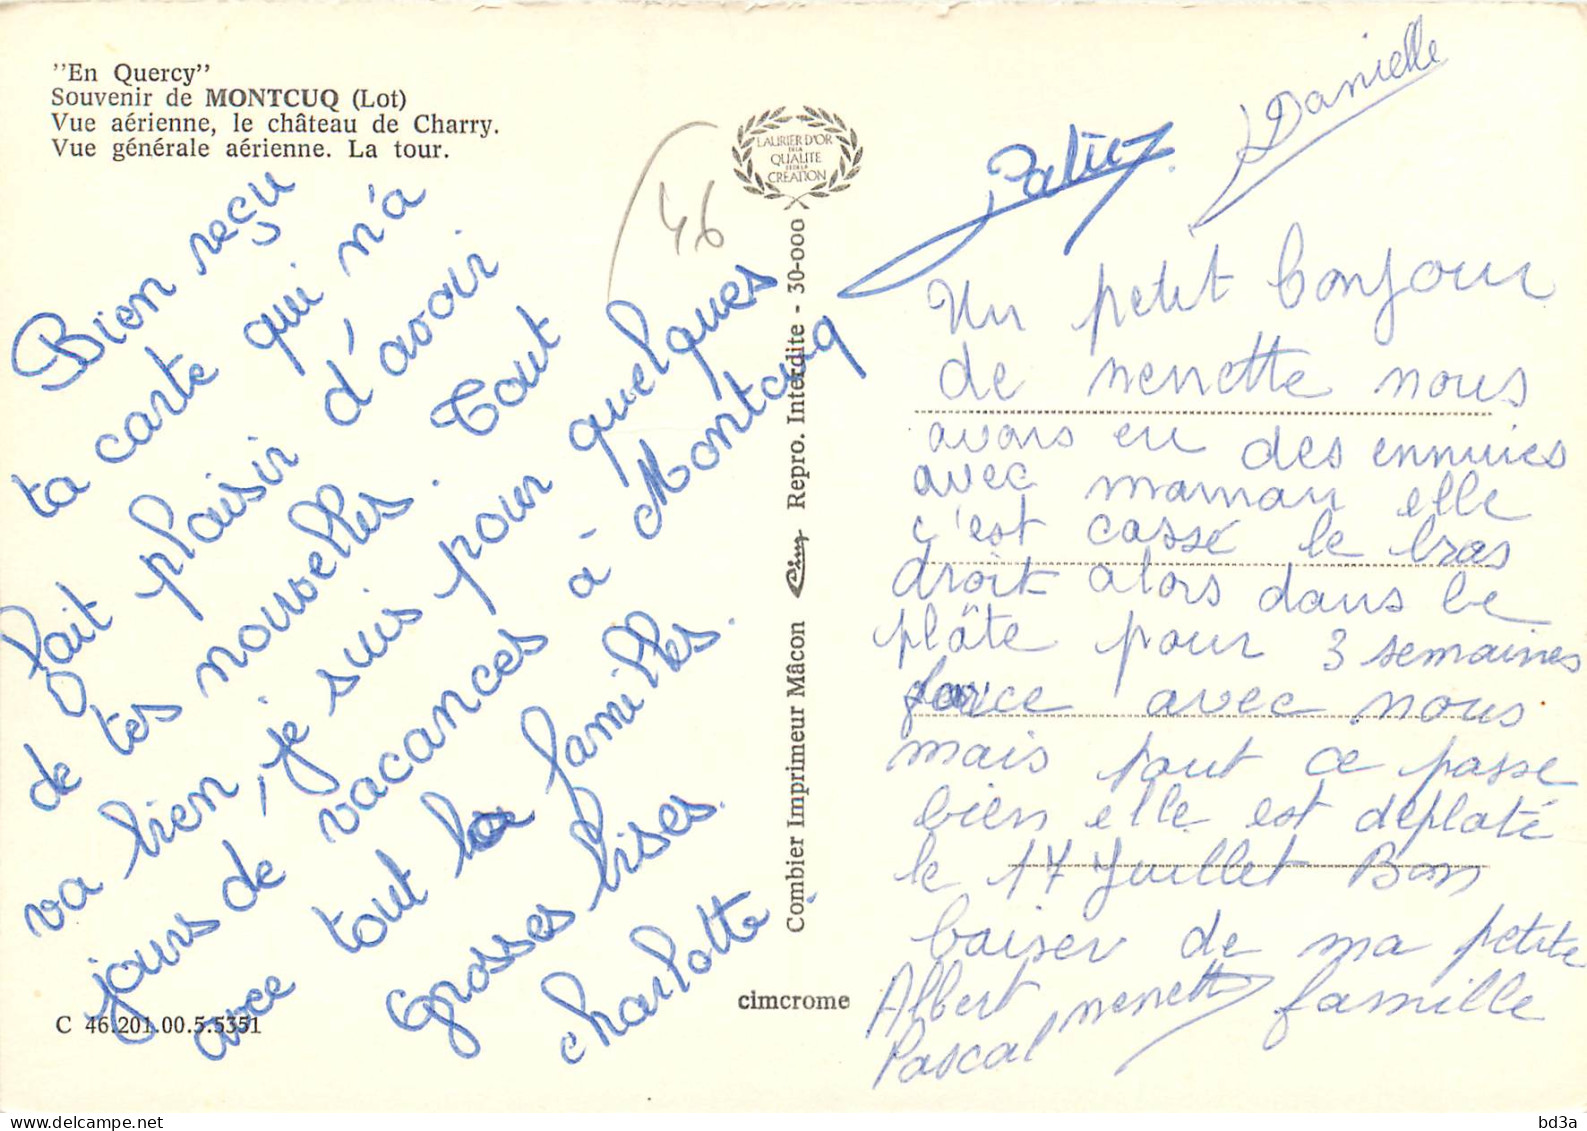 "En Quercy"
Souvenir de MONTCUQ (Lot)
Vue aérienne, le château de Charry.
Vue générale aérienne. La tour.
Bien reçu
ta carte qui n'a
fait plaisir d'avoir
de tes nouvelles. Tout
va bien, je suis pour quelques
jours de vacances à Montcuq
avce tout la familles.
Grosses bises.
Charlotte.
C 46.201.00.5.5351
46
LAURIER D'OR
DE LA
QUALITE
ET DE LA
CRÉATION
Combier Imprimeur Mâcon Cim Repro. Interdite - 30-000
cimcrome
Danielle
Un petit bonjour
de nenette nous
avons eu des ennuies
avec maman elle
c'est cassé le bras
droit alors dans le
plâte pour 3 semaines
avec nous
mais tout ce passe
bien elle est déplaté
le 17 Juillet Bons
baiser de ma petite
famille
Albert nenette
Pascal
bd3a